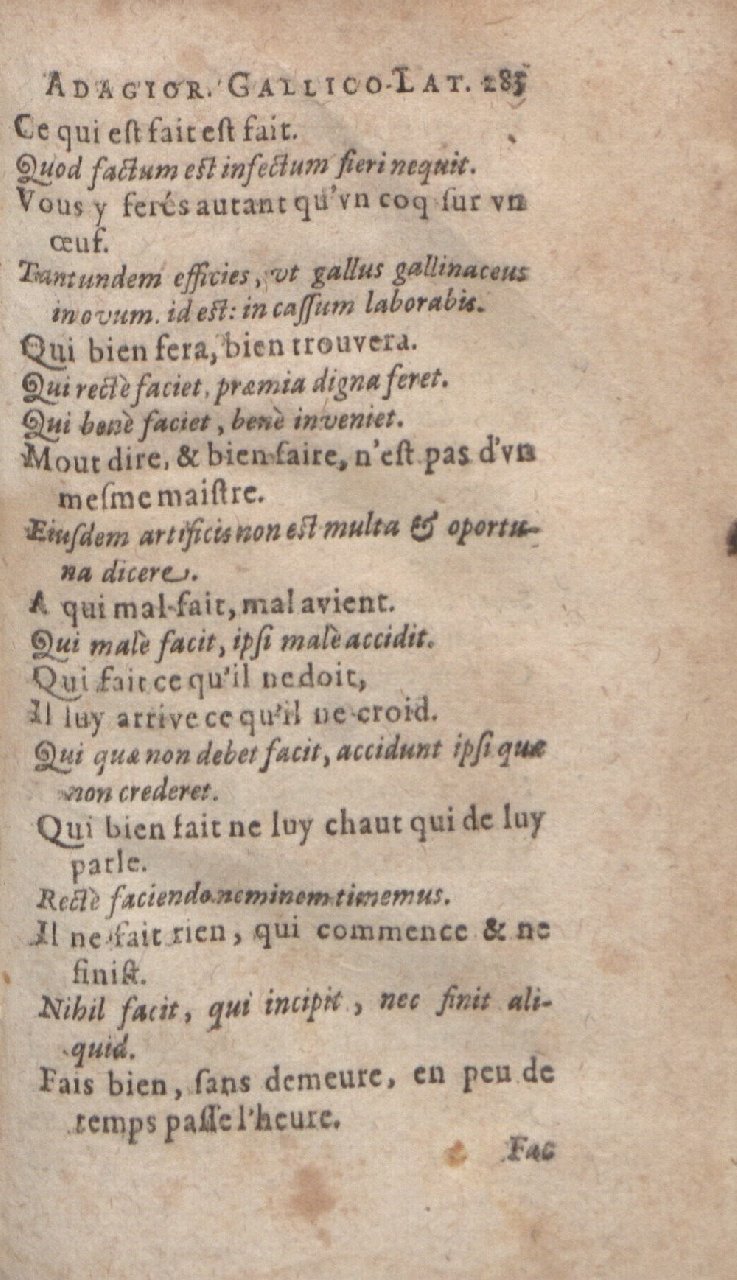 ADAGIOR. GALLICO-LAT. 285
Ce qui est fait est fait.
Quod factum est infectum fieri nequit.
Vous y ferés autant qu'vn coq sur vn
œuf.
Tantundem efficies, vt gallus gallinaceus
in ovum. id est: in cassum laborabis.
Qui bien fera, bien trouvera.
Qui rectè faciet, præmia digna feret.
Qui benè faciet, benè inveniet.
Mout dire, & bien faire, n'est pas d'vn
mesme maistre.
Eiusdem artificis non est multa & oportu-
na dicere.
A qui mal fait, mal avient.
Qui malè facit, ipsi malè accidit.
Qui fait ce qu'il ne doit,
Il luy arrive ce qu'il ne croid.
Qui quæ non debet facit, accidunt ipsi quæ
non crederet.
Qui bien fait ne luy chaut qui de luy
parle.
Rectè faciendo neminem timemus.
Il ne fait rien, qui commence & ne
finist.
Nihil facit, qui incipit, nec finit ali-
quid.
Fais bien, sans demeure, en peu de
temps passe l'heure.
Fac